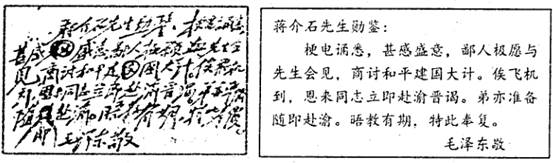 蒋介石先生勋鉴:梗电诵悉
甚感盛意鄙人极愿与先生
会见商讨和平建国大计俟飞机
到恩来同志立即赴渝晋谒弟亦准备
随即赴渝晤教有期特此奉复
毛泽东敬
蒋介石先生勋鉴:
梗电诵悉,甚感盛意,鄙人极愿与
先生会见,商讨和平建国大计。俟飞机
到,恩来同志立即赴渝晋谒。弟亦准备
随即赴渝。晤教有期,特此奉复。
毛泽东敬